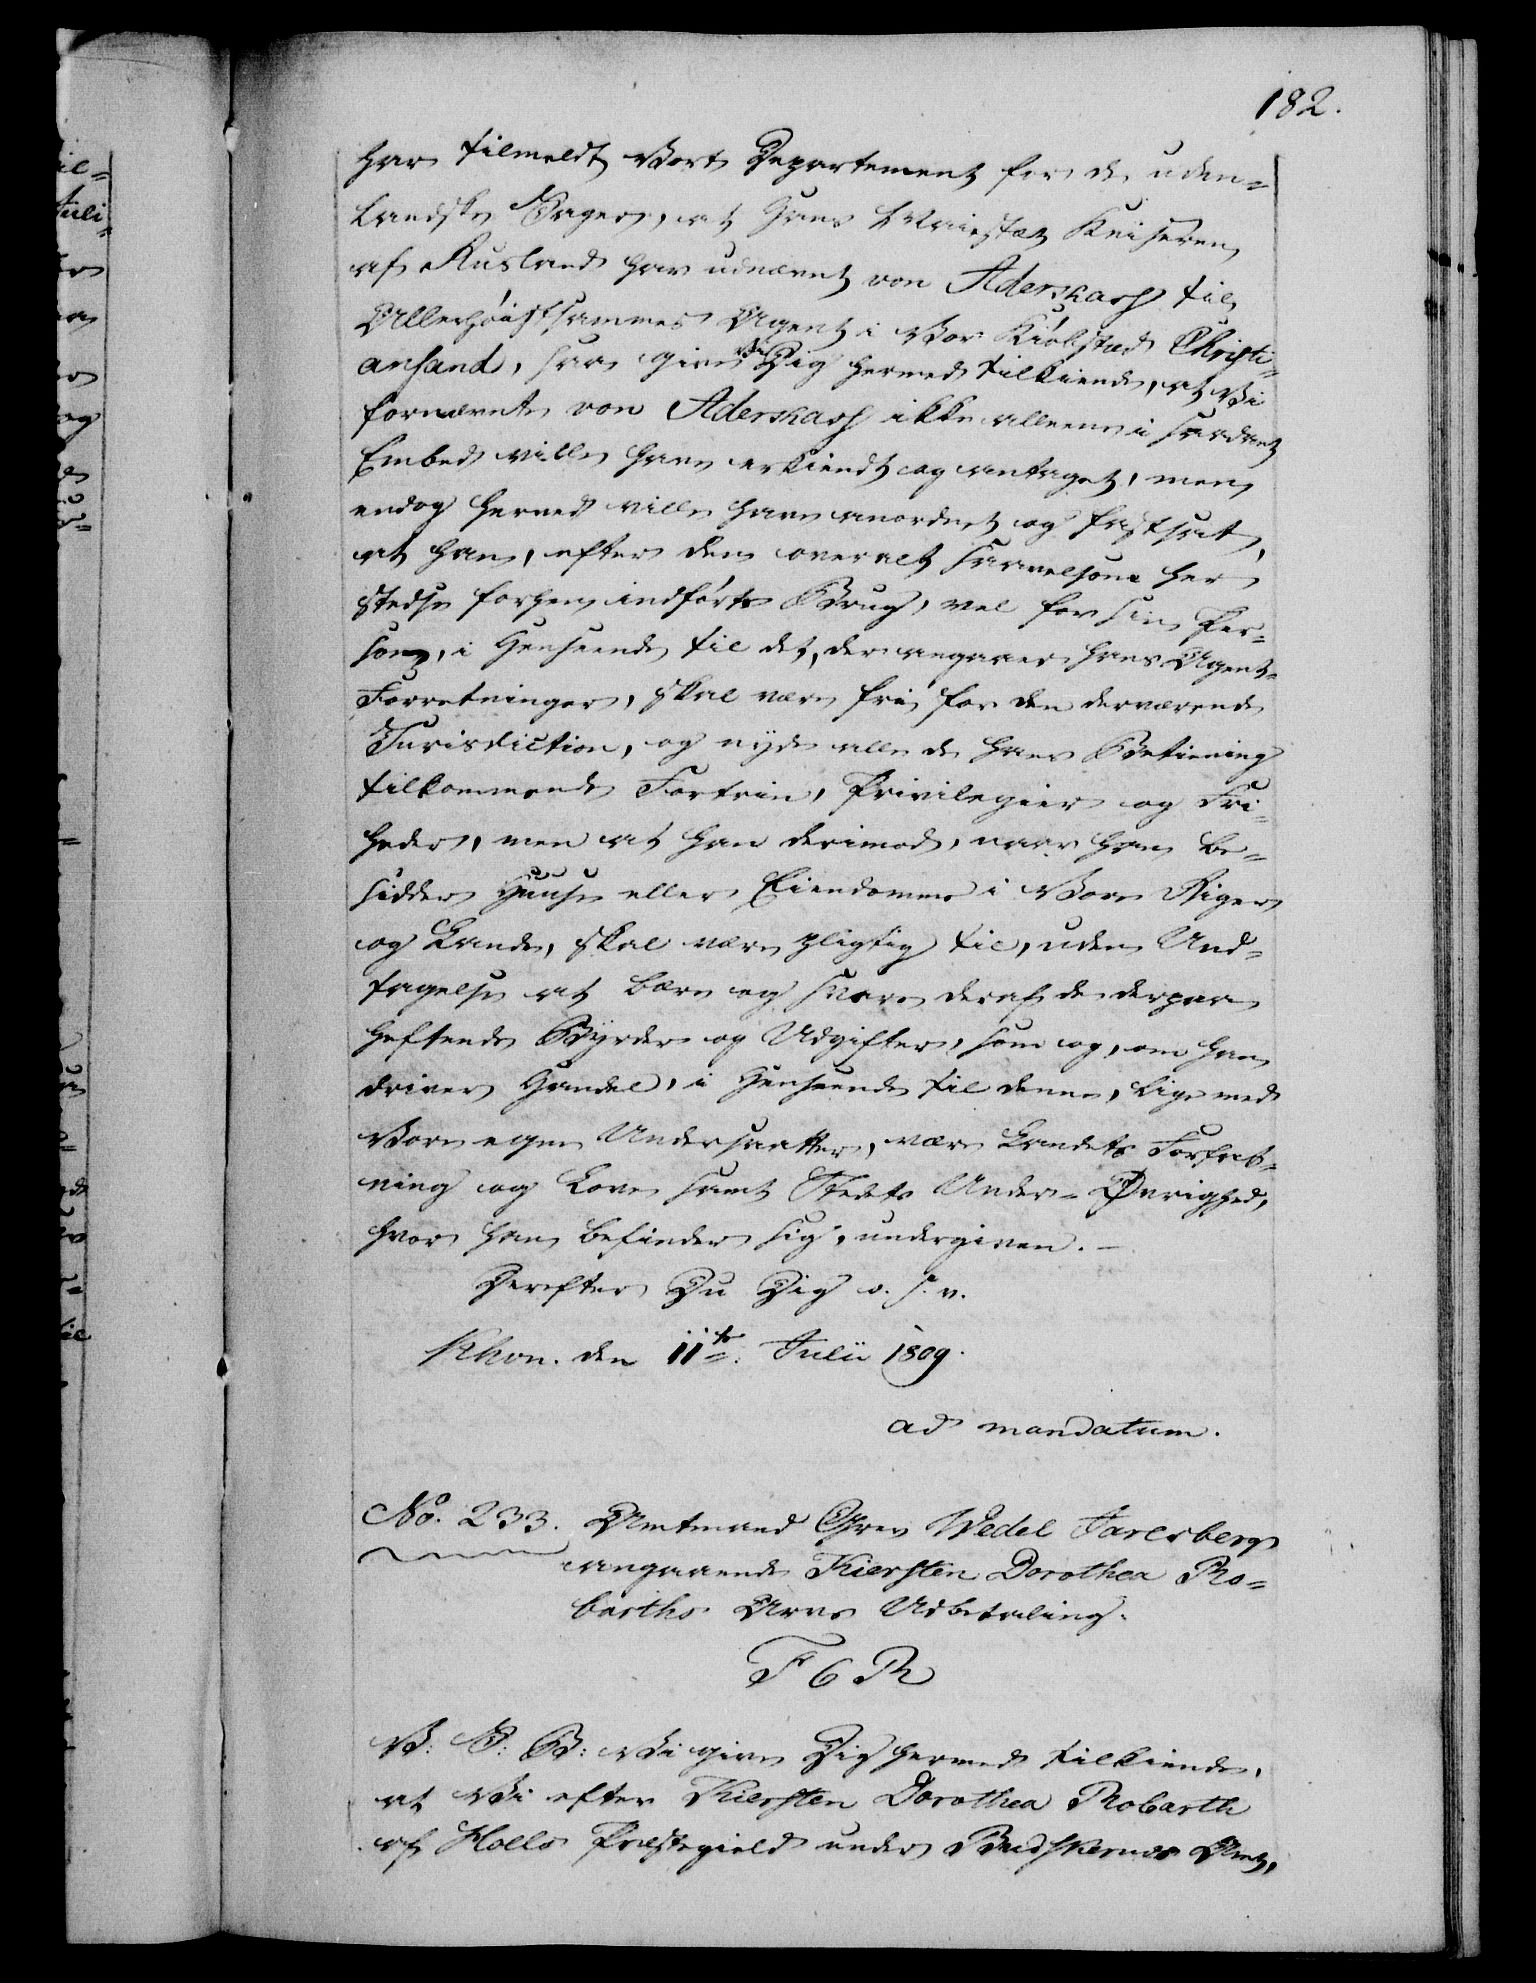 182.
har tilmeldt Vort Departement for de uden=
landske Sager, at Hans Maiestæt Keiseren
af Rusland har udnævnt von Aderskash til
Allerhøistsammes Agent i Vor Kiøbstad Christi=
ansand, saa give Vi Dig hermed tilkiende, at Vi
fornævnte von Aderskash ikke alleene i saadant
Embed ville have erkiendt og antaget, men
endog herved ville have anordnet og fastsat,
at han, efter den overalt saavelsom her
stedse forhen indførte Brug, vel for sin Per=
son, i Henseende til det, der angaaer hans Agent=
Forretninger, skal være fri for den derværende
Jurisdiction, og nyde alle de hans Betiening
tilkommende Fortrin, Privilegier og Fri=
heder, men at han derimod, naar han be=
sidder Huuse eller Eiendomme i Vore Riger
og Lande, skal være pligtig til, uden Und=
tagelse at bære og svare deraf de derpaa
heftende Byrder og Udgifter, som og, om han
driver Handel, i Henseende til denne, lige med
Vore egne Undersaatter, være Landets Forfat=
ning og Love samt Stedets Under=Øvrighed,
hvor han befinder sig, undergiven. —
Derefter Du Dig o. s. v.
Khvn. den 11te. Julii 1809.
ad mandatum.
No. 233. Amtmand Grev Wedel Jarlsberg
angaaende Kiersten Dorothea Ro=
barths Arvs Udbetaling.
F 6 R
V: G: B: Vi give Dig hermed tilkiende,
at Vi efter Kiersten Dorothea Robarth
af Holls Præstegield under Budskeruds Amt,